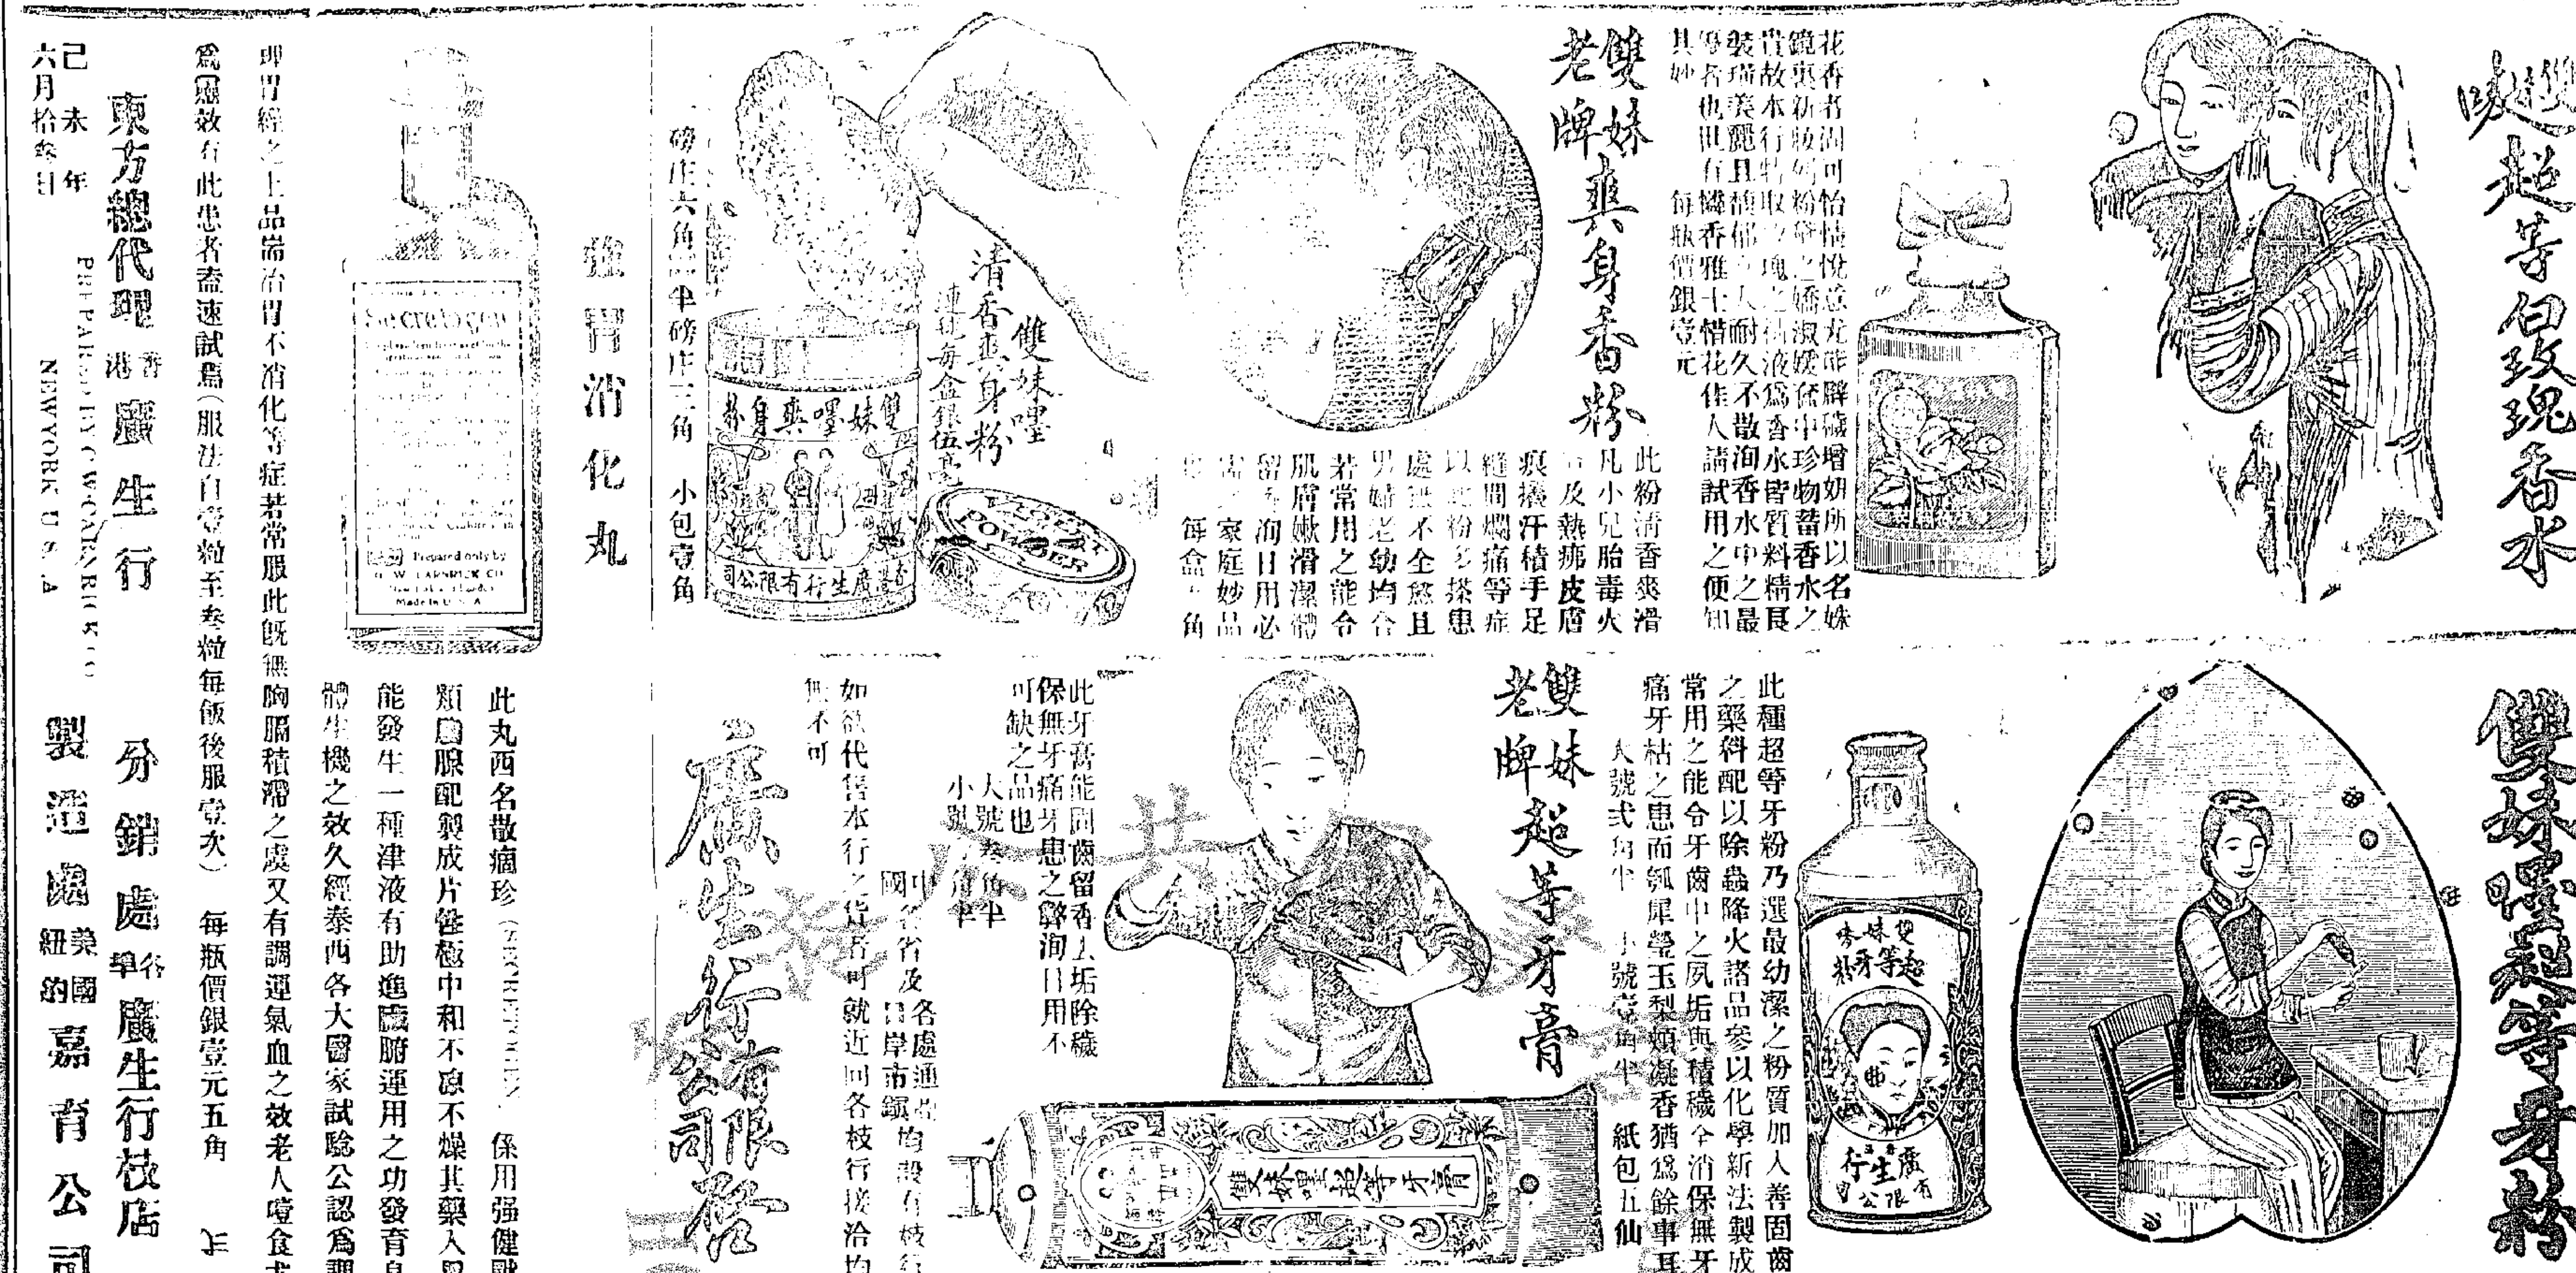 雙妹嘜超等白玫瑰香水
花香者固可怡情悅意尤能辟穢增妍所以名姝
貴故本行特取玫瑰之精液爲香水皆質料精良
裝璜美麗且馥郁 人耐久不散洵香水中之最
優者也世有憐香雅士惜花佳人請試用之便知
其妙 每瓶價銀壹元
雙妹
老牌
爽身香粉
此粉清香爽滑
凡小兒胎毒火
及熱痱皮膚
痕癢汗積手足
縫間爛痛等症
以此粉多搽患
處無不全愈且
男婦老幼均合
若常用之能令
肌膚嫩滑潔體
留香洵日用必
需之家庭妙品
每盒 角
雙妹嘜
清香爽身粉
連 每盒銀伍毫
雙妹嘜爽身粉
香港廣生行有限公司
POWDER
磅庄六角 半磅庄三角 小包壹角
雙妹嘜超等牙粉
此種超等牙粉乃選最幼潔之粉質加入善固齒
之藥料配以除蟲降火諸品參以化學新法製成
常用之能令牙齒中之夙垢與積穢全消保無牙
痛牙枯之患而瓠犀瑩玉梨頰凝香猶爲餘事耳
大號弍角半 小號壹角半 紙包五仙
雙妹嘜
超等牙粉
廣生行
有限公司
雙妹
老牌
超等牙膏
此牙膏能固齒留香去垢除穢
保無牙痛牙患之弊洵日用不
可缺之品也
大號叁角半
小號 角半
雙妹嘜超等牙膏
中國各省及各處通商
口岸市鎮均設有枝行
如欲代售本行之貨者可就近向各枝行接洽均
無不可
廣生行有限公司啓
強胃消化丸
Secretogen
Prepared only by
G. W. CARNRICK CO
Made in U. S. A
此丸西名散瘤珍（SECRETOGEN） 係用强健獸
類 腺配製成片性極中和不凉不燥其藥入胃
能發生一種津液有助進臟腑運用之功發育身
體生機之效久經泰西各大醫家試驗公認爲調
理胃經之上品耑治胃不消化等症若常服此旣無胸膈積滯之虞又有調運氣血之效老人噎食尤
爲靈效有此患者盍速試焉（服法自壹粒至叁粒每飯後服壹次） 每瓶價銀壹元五角
東方總代理 香港 廣生行 分銷處 各埠 廣生行枝店
PREPARED BY G W CARNRICK CO
NEW YORK U S A
製造處 美國紐約 嘉育公司
己未年
六月拾叁日